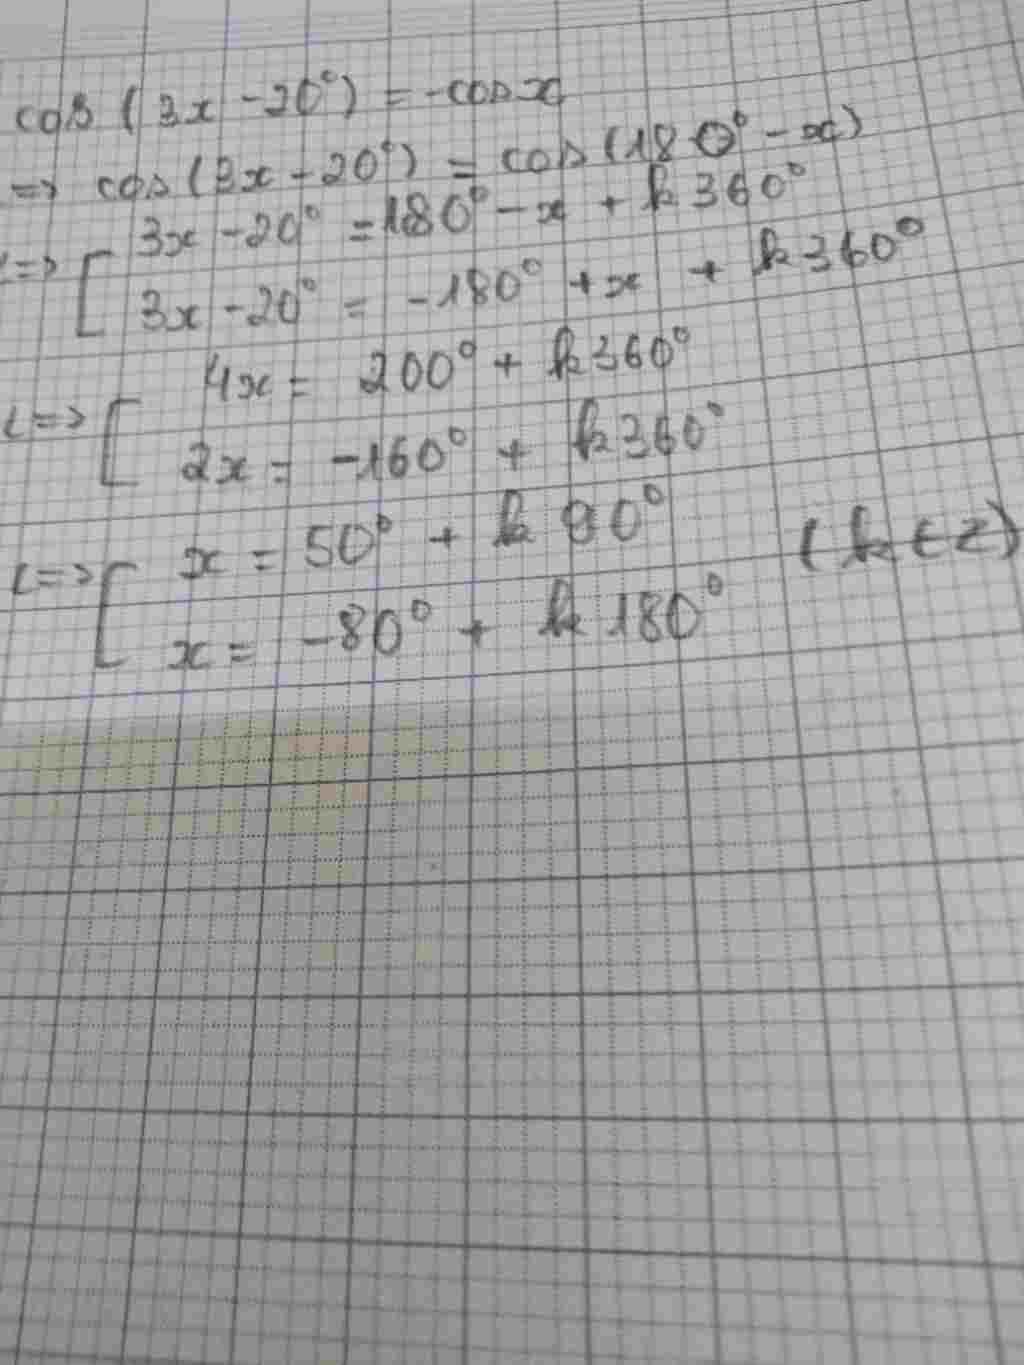 cos(3x - 20°) = -cos x
=> cos(3x - 20°) = cos(180° - x)
<=> [ 3x - 20° = 180° - x + k360°
3x - 20° = -180° + x + k360°
<=> [ 4x = 200° + k360°
2x = -160° + k360°
<=> [ x = 50° + k90° (k ∈ Z)
x = -80° + k180°